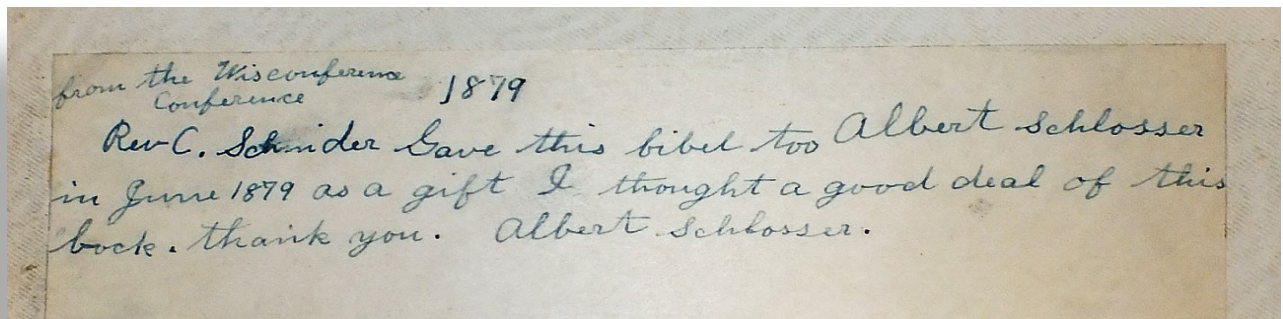 from the Wisconference
Conference 1879
Rev C. Schnider Gave this bibel too Albert Schlosser
in June 1879 as a gift I thought a good deal of this
bock. thank you. Albert Schlosser.